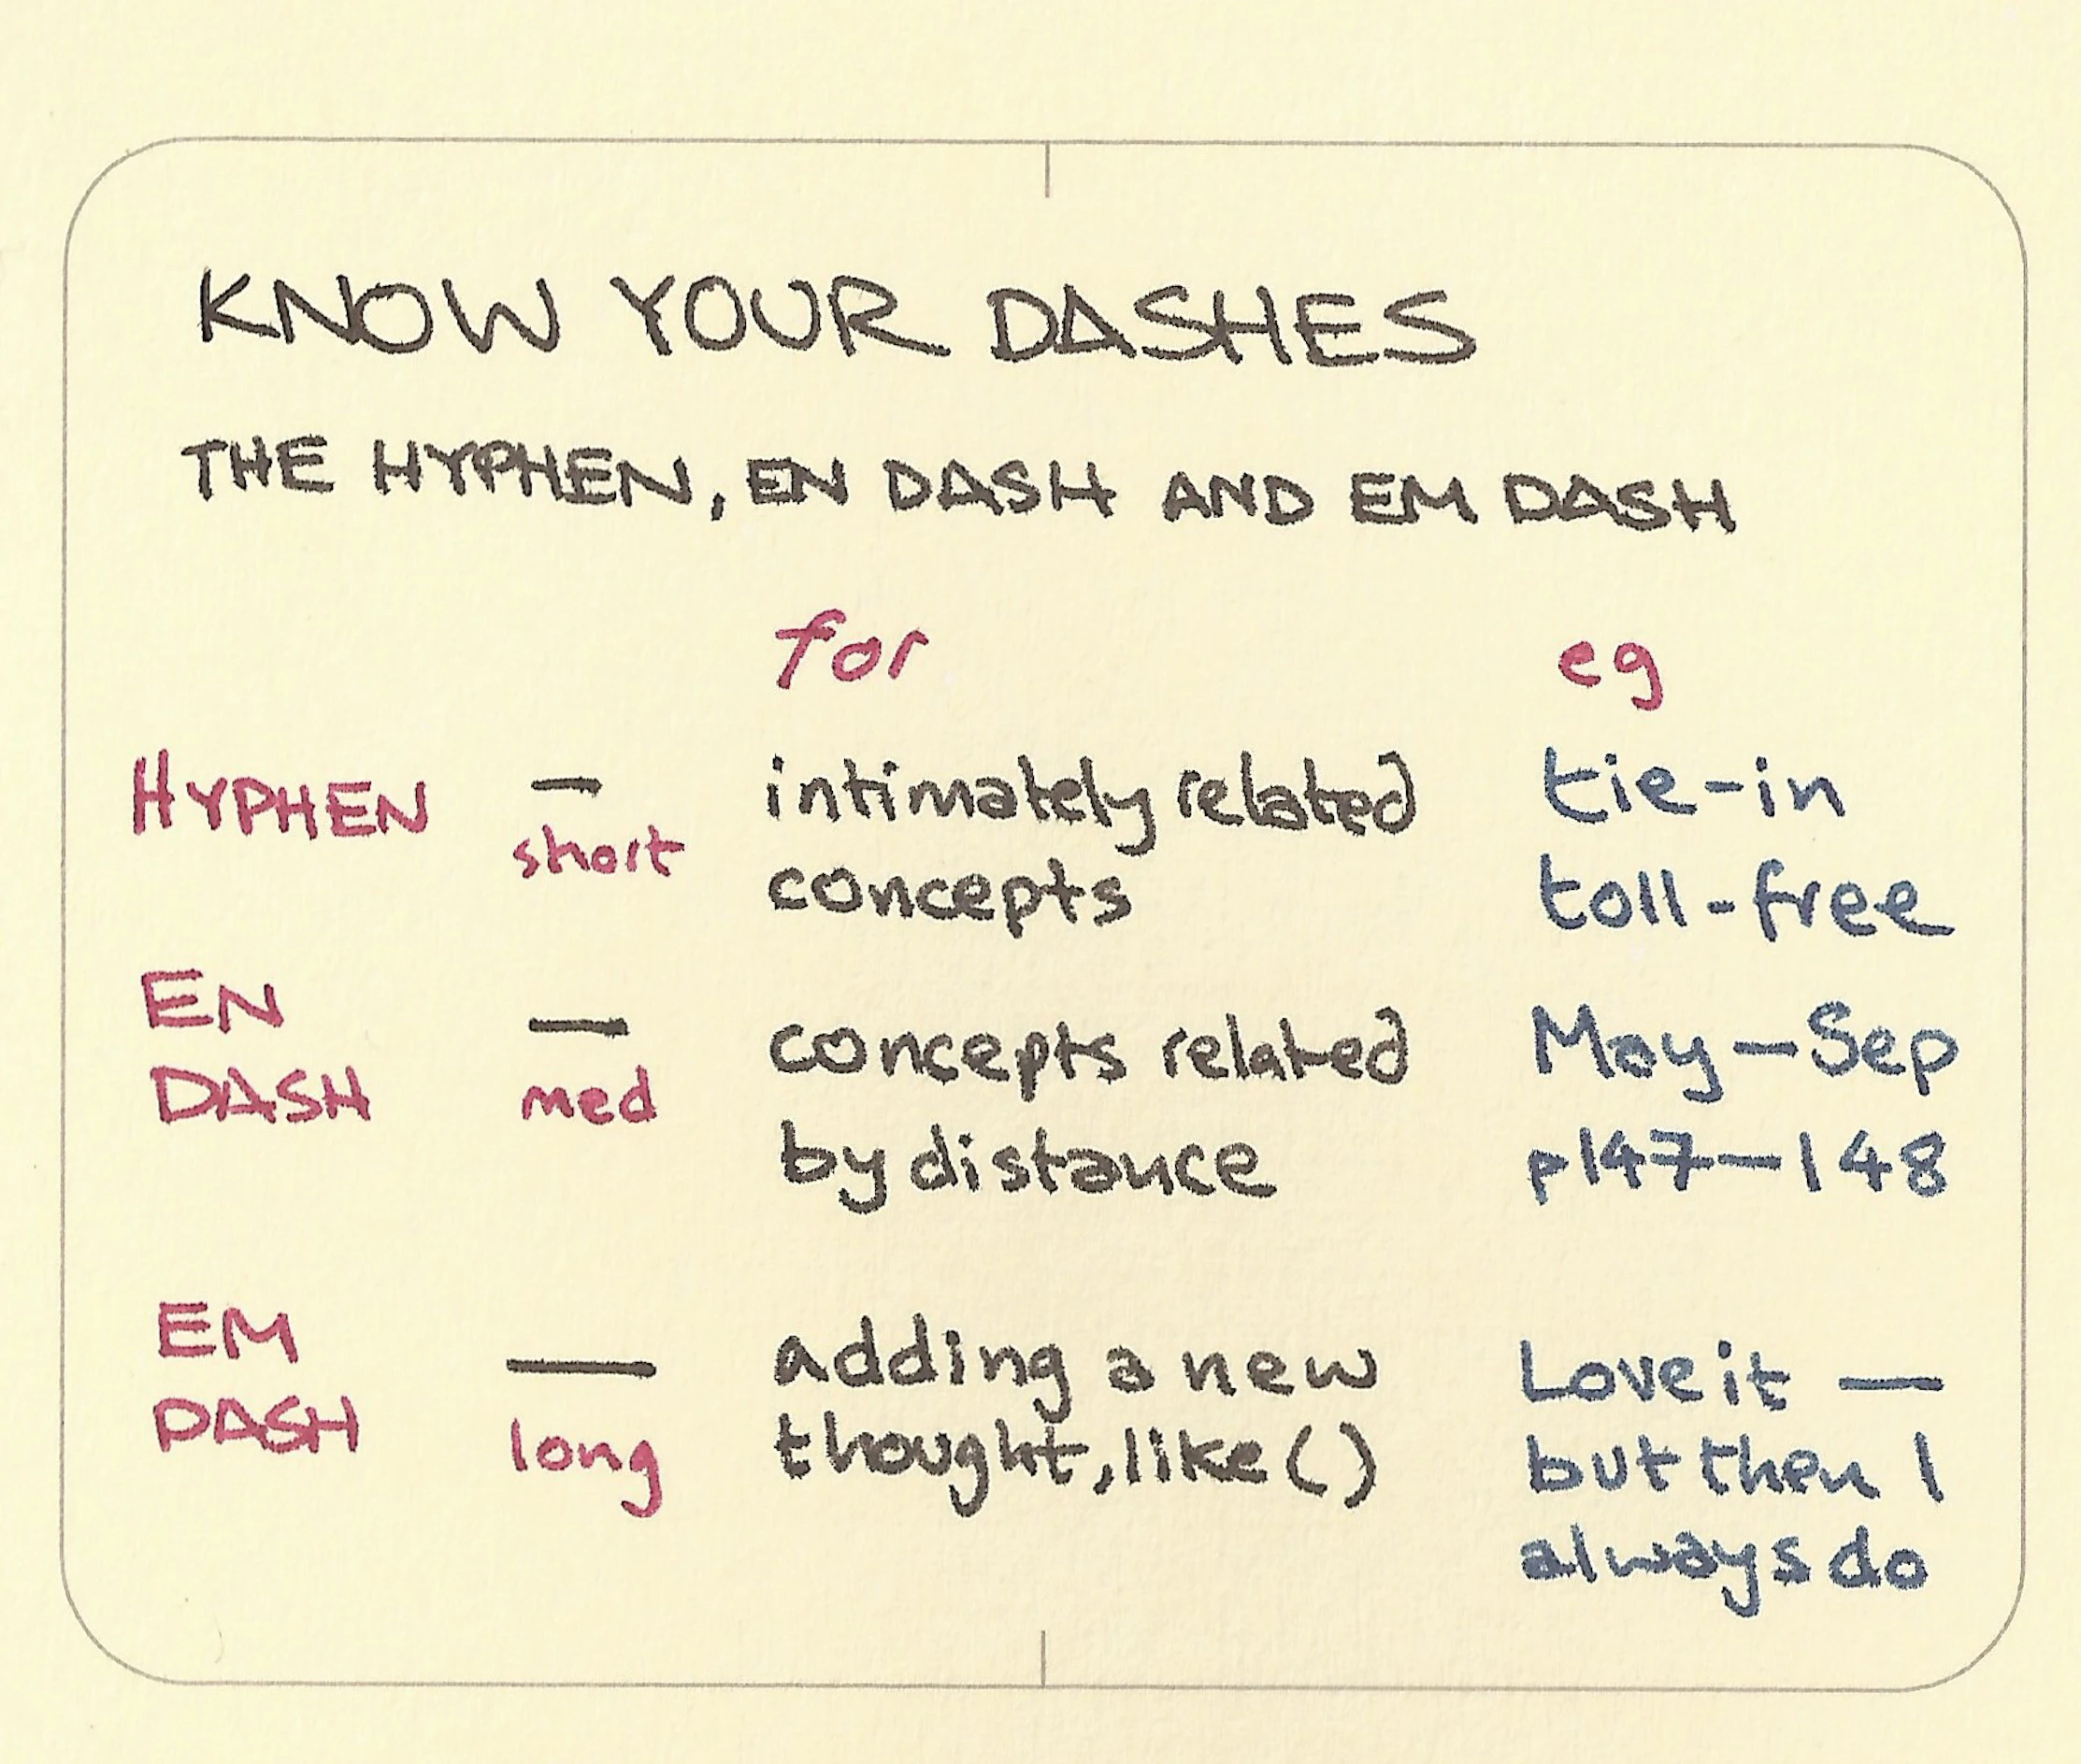 KNOW YOUR DASHES
THE HYPHEN, EN DASH AND EM DASH
for eg
HYPHEN - intimately related tie-in
short concepts toll-free
EN
DASH – concepts related May–Sep
med by distance p147–148
EM
DASH — adding a new Love it —
long thought, like () but then I
always do